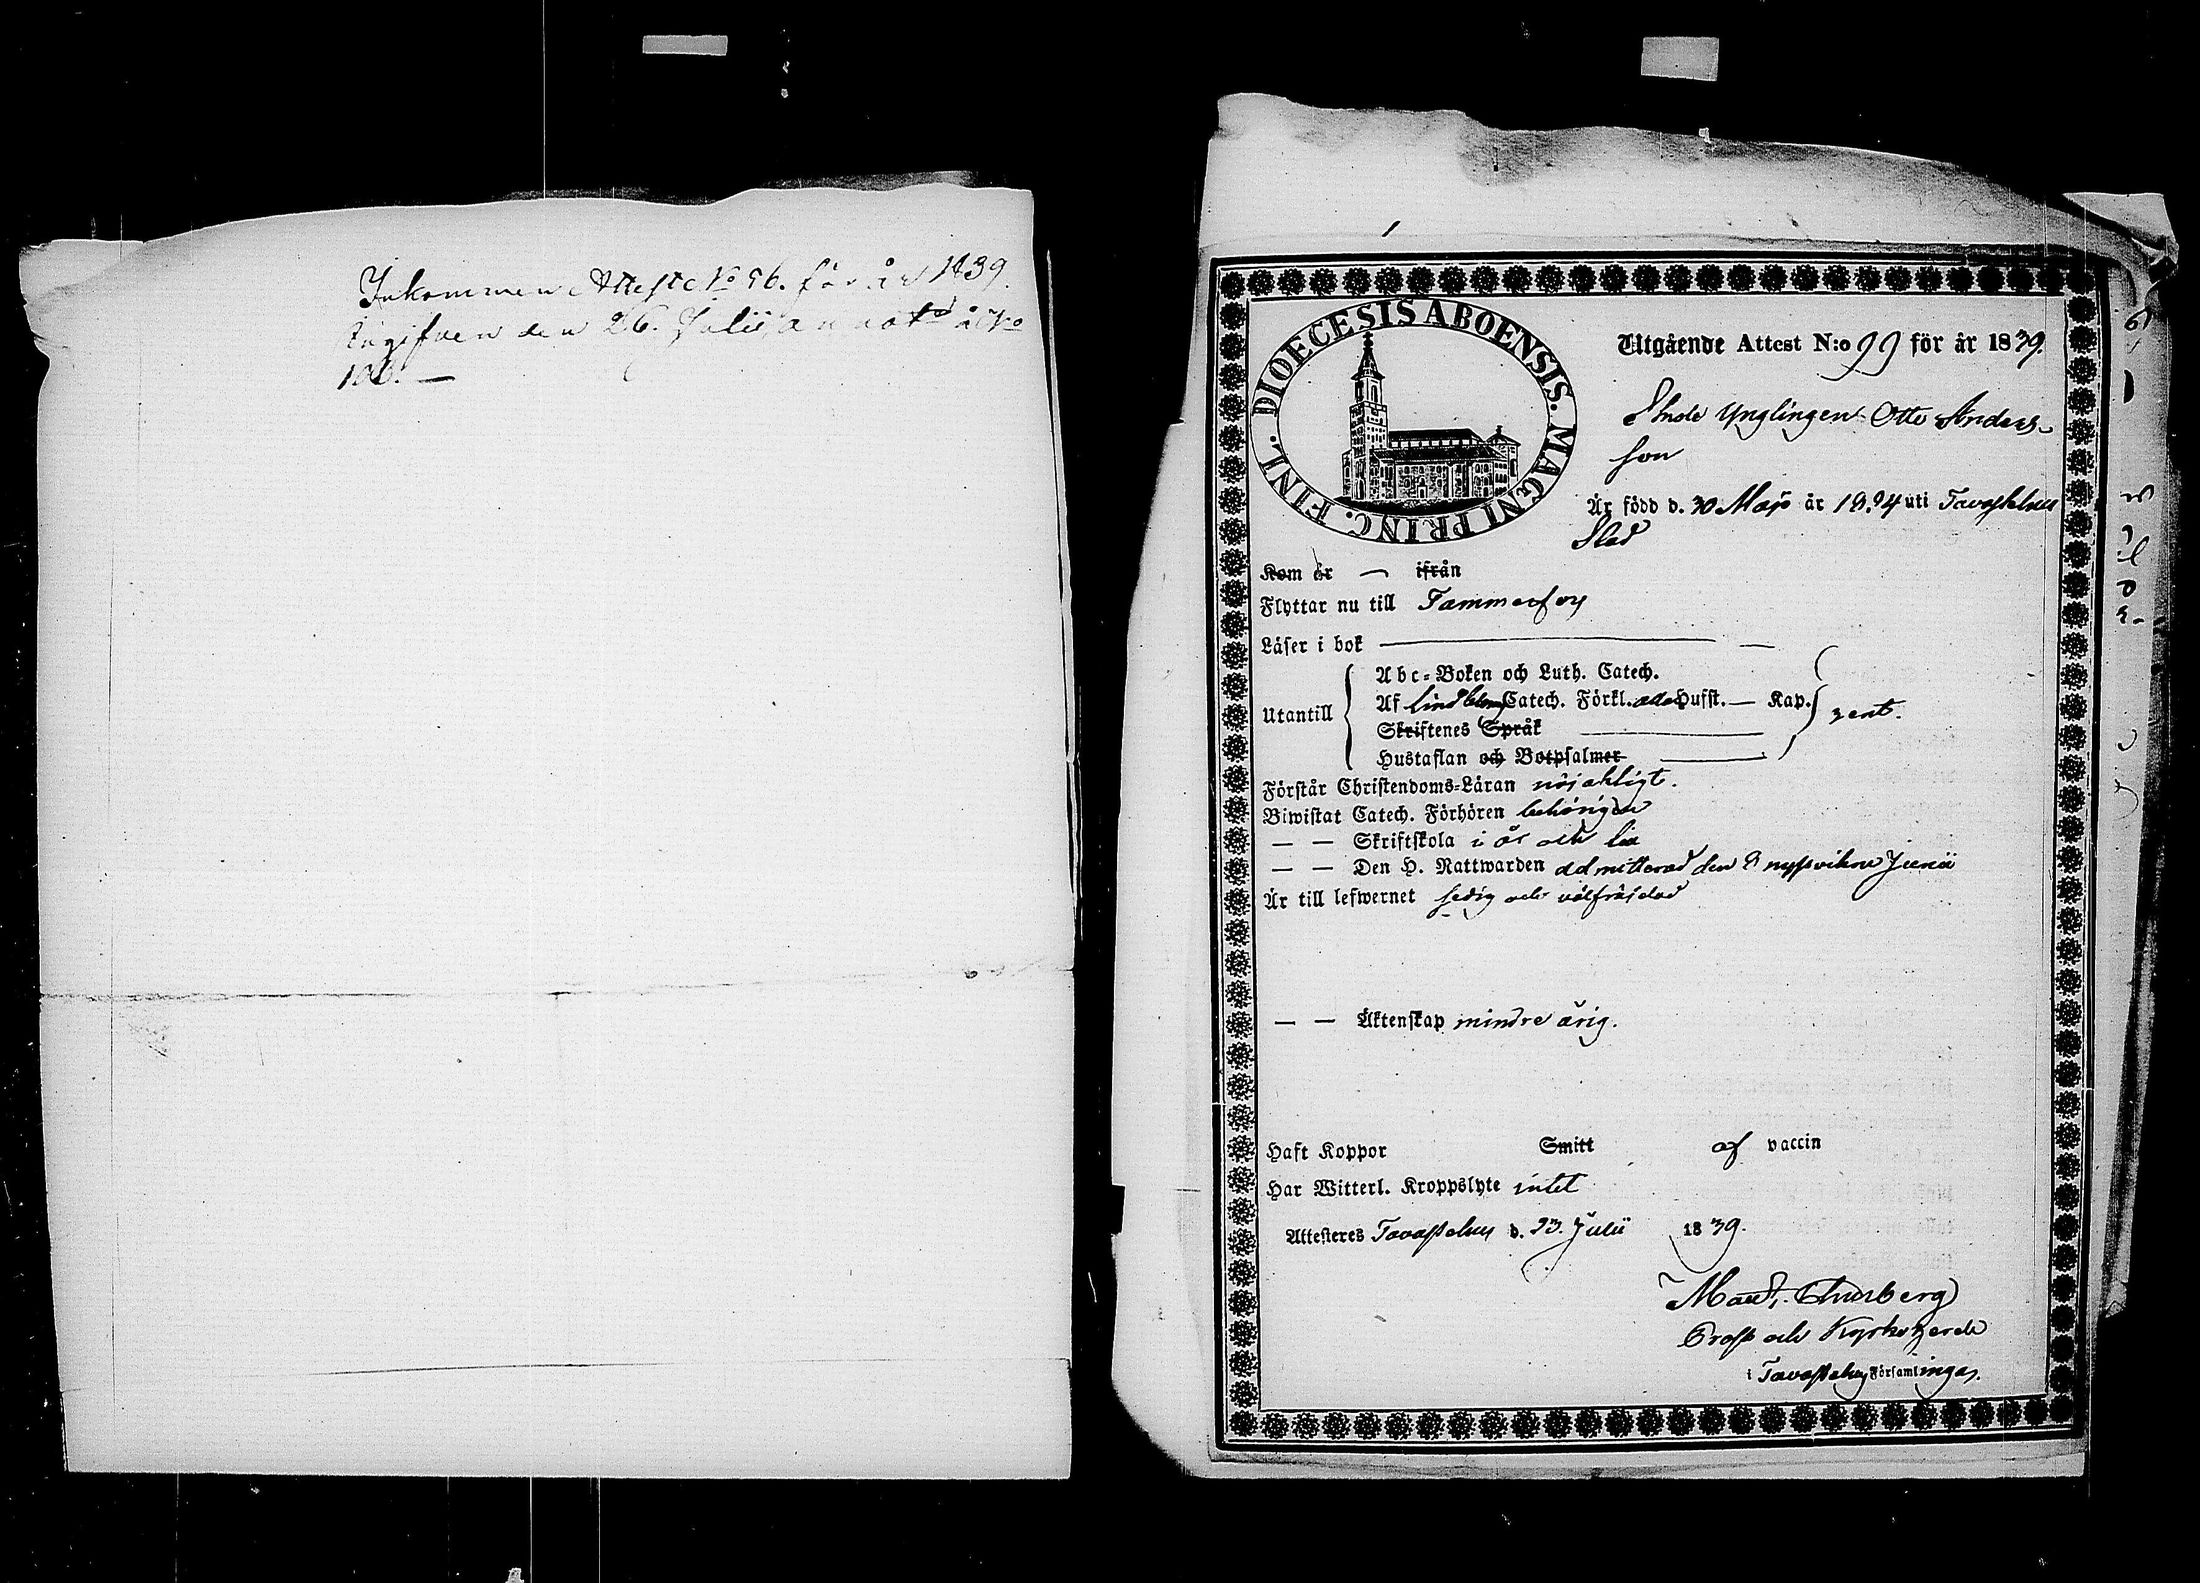 Inkommen Attest No 56. för år 1839.
Ingifven den 26. Julii, annot. å No
100. —
DIOECESIS ABOENSIS. MAGNI PRINC. FINL.
Utgående Attest N:o 99 för år 1839.
Ynglingen Otto Anders-
son
Är född d. 30 Maji år 1824 uti Tavastehus
Stad
Kom år — ifrån
Flyttar nu till Tammerfors
Läser i bok —
Abc-Boken och Luth. Catech.
Utantill Af Lindbloms Catech. Förkl. alla Hufst. — Kap.
Skriftenes Språk
Hustaflan och Botpsalmer
Förstår Christendoms-Läran nöjaktigt.
Biwistat Catech. Förhören behörigen
— — Skriftskola i år och
— — Den H. Nattwarden admitterad den Junii
Är till lefwernet sedig och välfräjdad
— — Äktenskap mindre årig.
Haft Koppor Smitt af vaccin
Har Witterl. Kroppslyte intet
Attesteres Tavastehus d. 23. Julii 1839.
Prost och Kyrkoherde
i Tavastehus Församlingar.